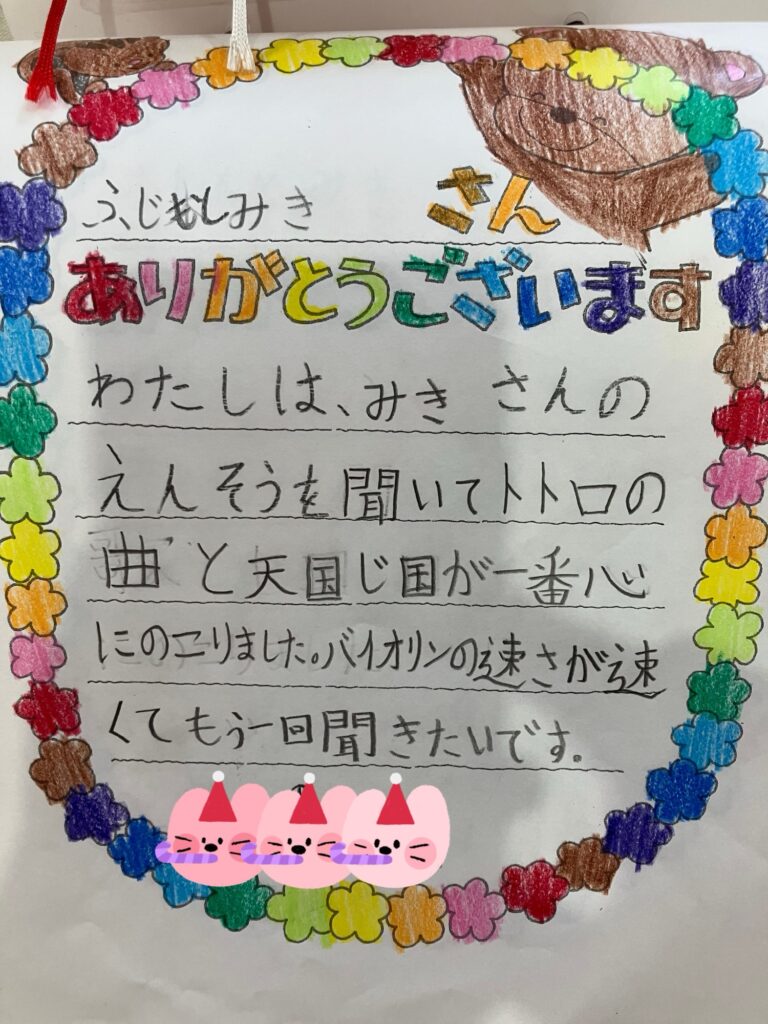 ふじもしみき さん
ありがとうございます
わたしは、みき さんの
えんそうを聞いてトトロの
曲と天国じ国が一番心
にのこりました。バイオリンの速さが速
くてもう一回聞きたいです。